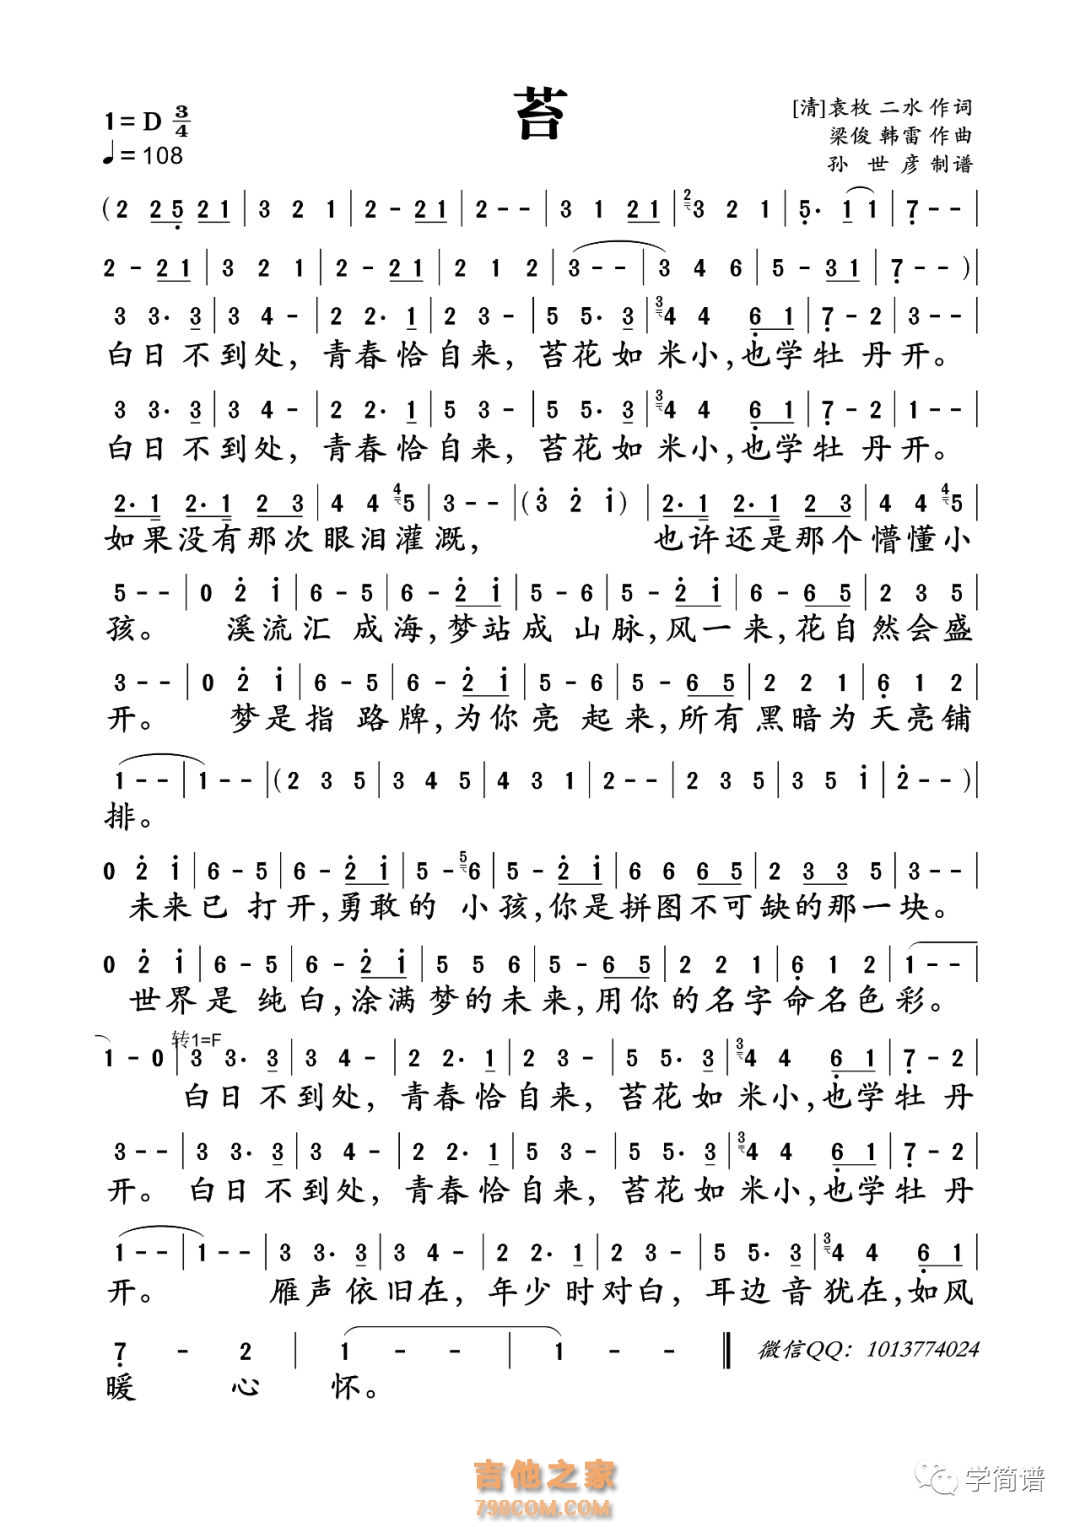 苔
1=D 3/4
♩=108
[清]袁枚 二水 作词
梁俊 韩雷 作曲
孙 世 彦 制谱
(2 2 5 2 1 | 3 2 1 | 2 - 2 1 | 2 - - | 3 1 2 1 | 2 3 2 1 | 5· 1 1 | 7 - -
2 - 2 1 | 3 2 1 | 2 - 2 1 | 2 1 2 | 3 - - | 3 4 6 | 5 - 3 1 | 7 - - )|
3 3· 3 | 3 4 - | 2 2· 1 | 2 3 - | 5 5· 3 | 3 4 4 6 1 | 7 - 2 | 3 - - |
白日 不到处，青春恰自来，苔花如 米小，也学牡 丹开。
3 3· 3 | 3 4 - | 2 2· 1 | 5 3 - | 5 5· 3 | 3 4 4 6 1 | 7 - 2 | 1 - - |
白日 不到处，青春恰自来，苔花如 米小，也学牡 丹开。
2· 1 2· 1 2 3 | 4 4 4 5 | 3 - - | (3 2 1) | 2· 1 2· 1 2 3 | 4 4 4 5 |
如果没有那次眼泪灌溉， 也许还是那个懵懂小
5 - - | 0 2 1 | 6 - 5 | 6 - 2 1 | 5 - 6 | 5 - 2 1 | 6 - 6 5 | 2 3 5 |
孩。 溪流汇 成海，梦站成 山脉，风一来，花自然会盛
3 - - | 0 2 1 | 6 - 5 | 6 - 2 1 | 5 - 6 | 5 - 6 5 | 2 2 1 | 6 1 2 |
开。 梦是指 路牌，为你亮 起来，所有黑暗为天亮铺
1 - - | 1 - - |(2 3 5 | 3 4 5 | 4 3 1 | 2 - - | 2 3 5 | 3 5 1 | 2 - - )|
排。
0 2 1 | 6 - 5 | 6 - 2 1 | 5 - 5 6 | 5 - 2 1 | 6 6 6 5 | 2 3 3 5 | 3 - - |
未来已 打开，勇敢的 小孩，你是拼图不可缺的那一块。
0 2 1 | 6 - 5 | 6 - 2 1 | 5 5 6 | 5 - 6 5 | 2 2 1 | 6 1 2 | 1 - - |
世界是 纯白，涂满梦的未来，用你的名字命名色彩。
转1=F
1 - 0 | 3 3· 3 | 3 4 - | 2 2· 1 | 2 3 - | 5 5· 3 | 3 4 4 6 1 | 7 - 2 |
白日 不到处，青春恰自来，苔花如 米小，也学牡 丹
3 - - | 3 3· 3 | 3 4 - | 2 2· 1 | 5 3 - | 5 5· 3 | 3 4 4 6 1 | 7 - 2 |
开。白日 不到处，青春恰自来，苔花如 米小，也学牡 丹
1 - - | 1 - - | 3 3· 3 | 3 4 - | 2 2· 1 | 2 3 - | 5 5· 3 | 3 4 4 6 1 |
开。 雁声依旧在，年少时对白，耳边音犹在，如风
7 - 2 | 1 - - | 1 - - ‖ 微信QQ：1013774024
暖 心 怀。
吉他之家
798COM.COM
学简谱